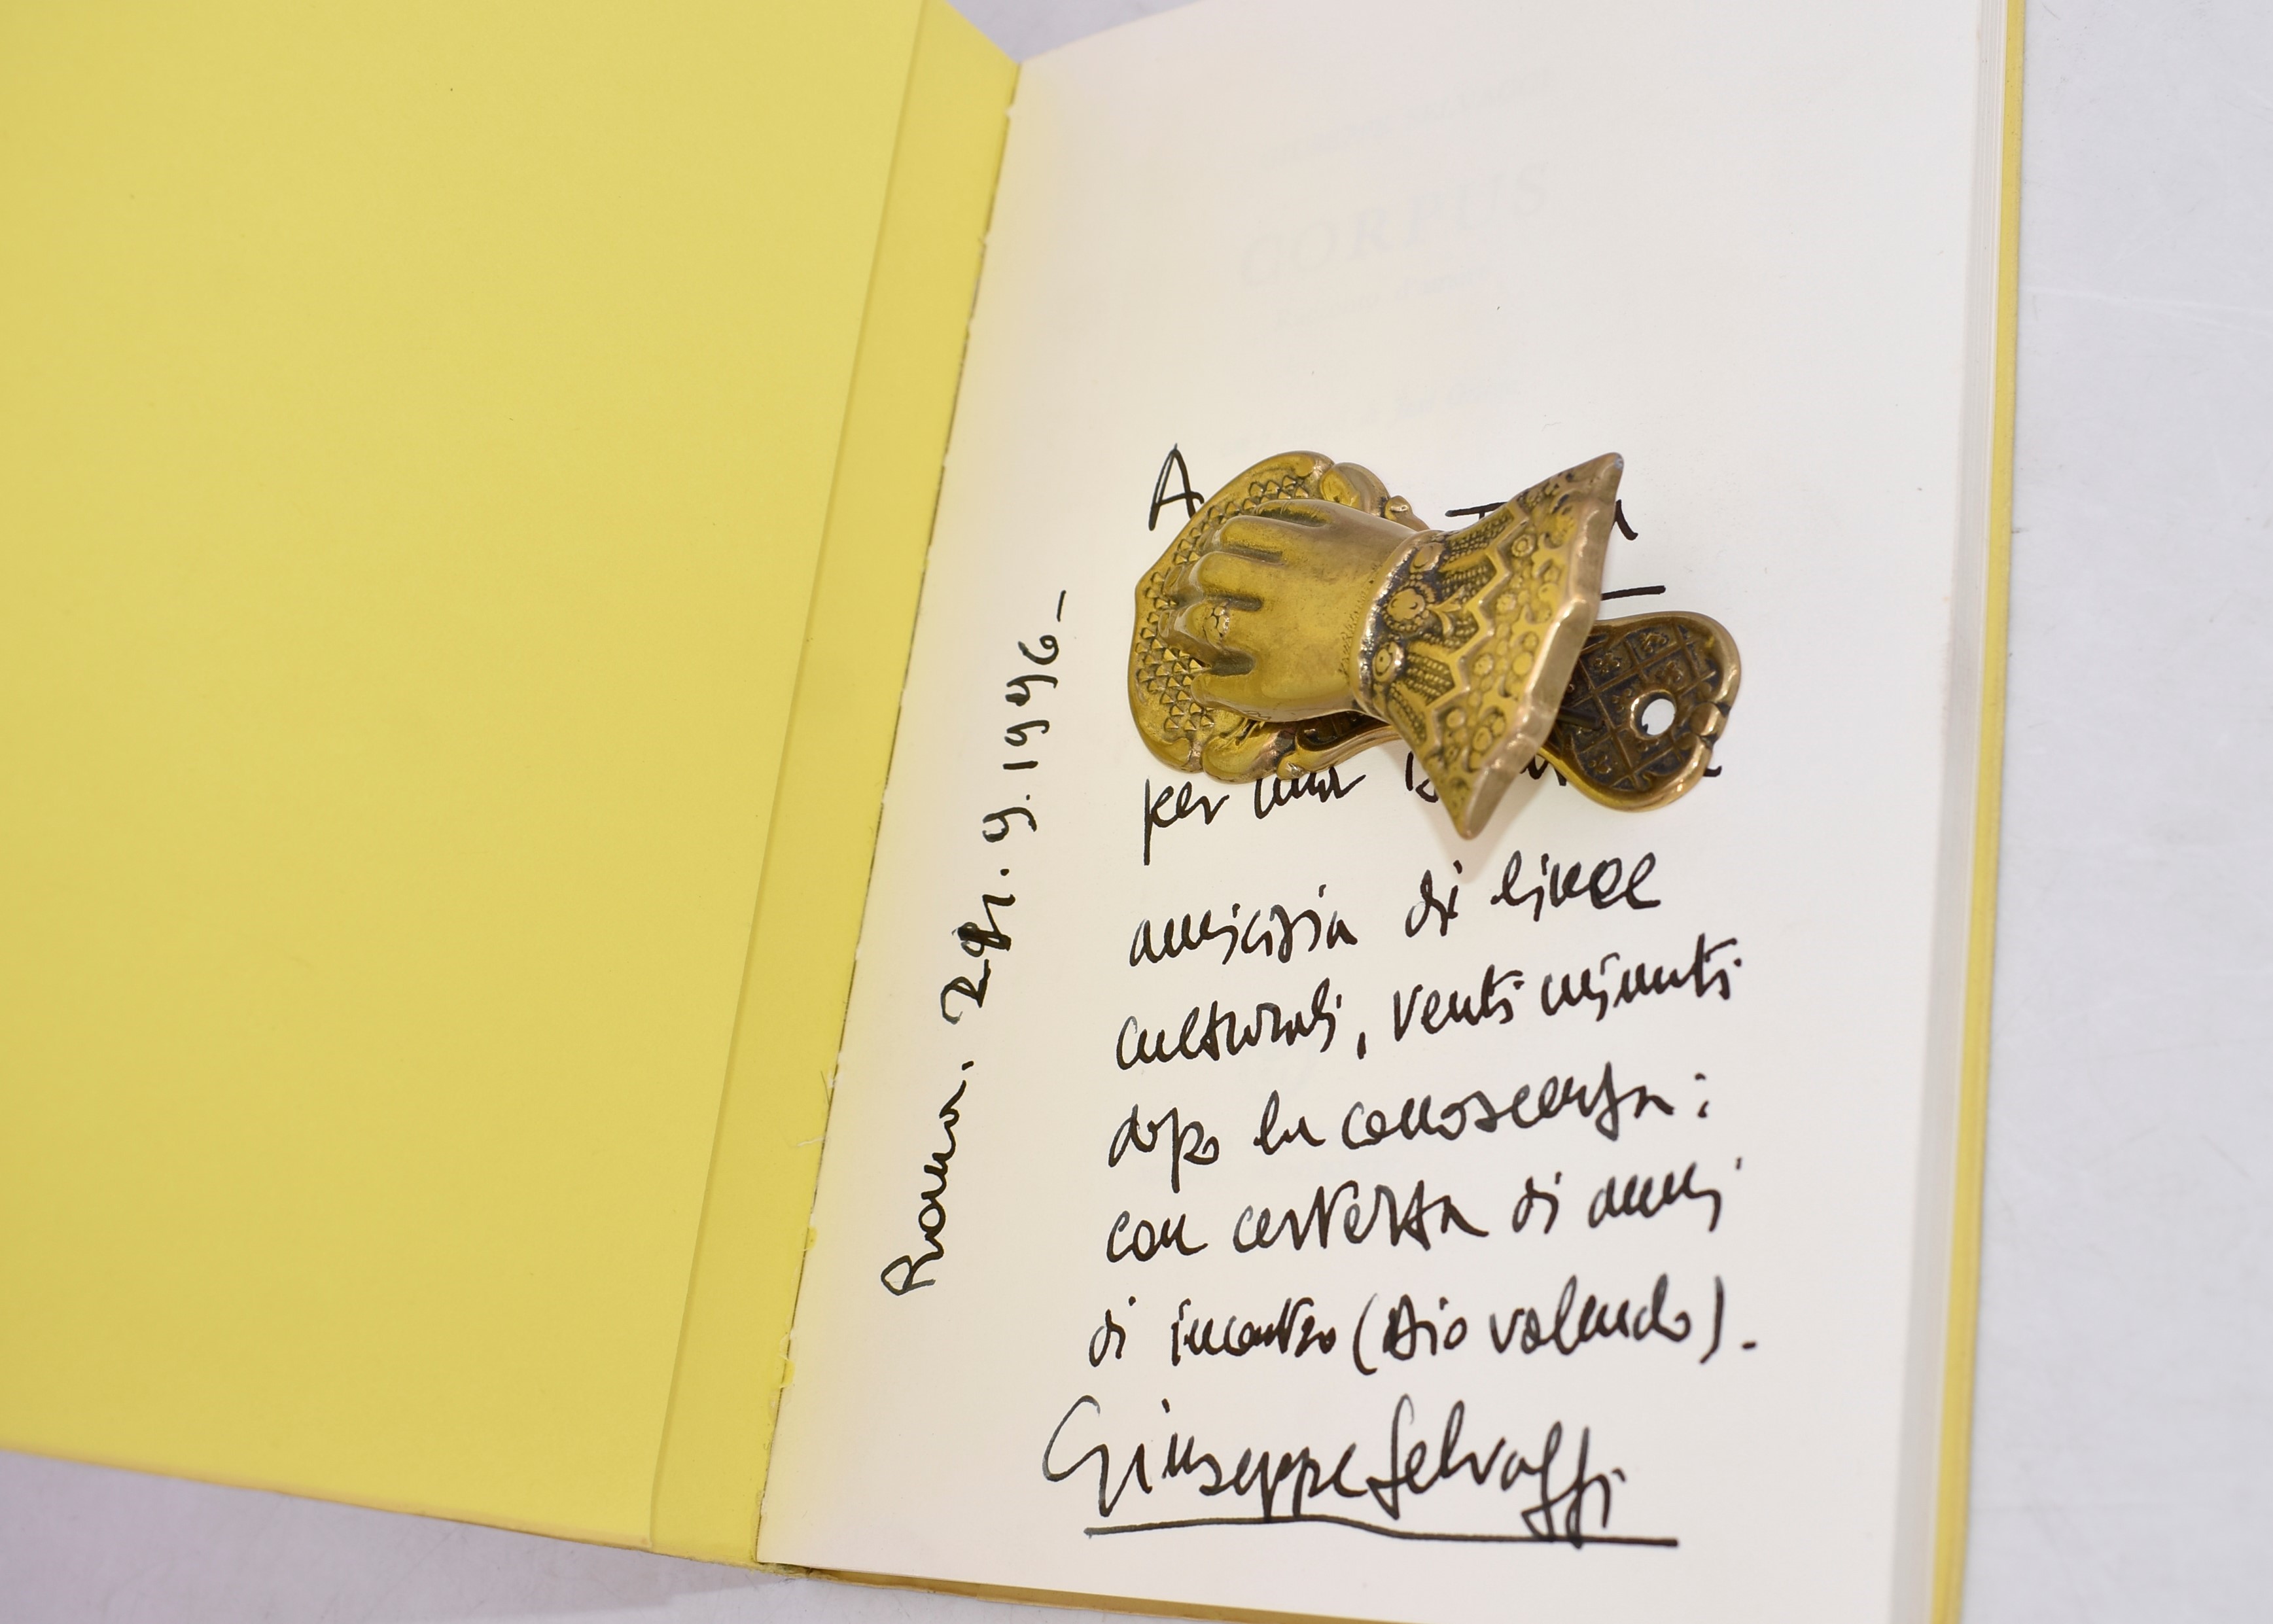 CORPUS
A
per una
amicizia di linee
culturali, venti minuti
dopo la conoscenza:
con certezza di anni
di incontro (Dio volendo).
Giuseppe Selvaggi
Roma.